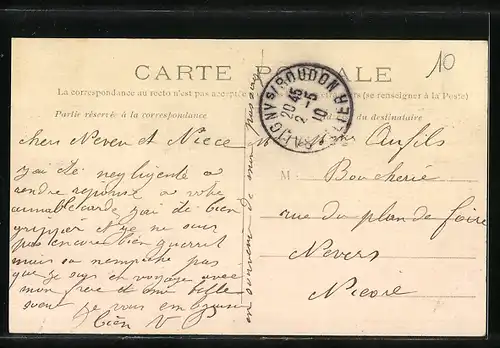 10
CARTE POSTALE
La correspondance au recto n'est pas accepté (se renseigner à la Poste)
Partie réservée à la correspondance du destinataire
SALIGNY S/ ROUDON ALLIER
20 45
2 - 5
10
chers Neveu et Niece
jai été negligente a
rendre reponse a votre
aimable carde jai été bien
gripper et je ne suis
pas encore bien guerrit
mais sa nempeche pas
que je suis en voyage avec
mon frere et ma belle
sœur je vous embrasse
bien V P
en souvenir de mon
M
Boucherie
rue du plan de foire
Nevers
Nievre